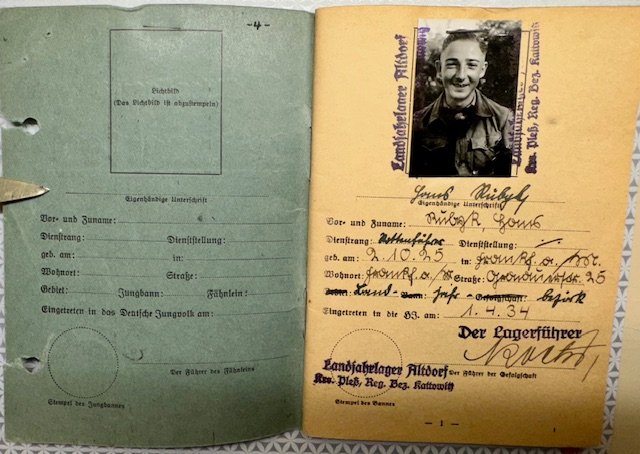 -4-
Lichtbild
(Das Lichtbild ist abzustempeln)
Eigenhändige Unterschrift
Vor- und Zuname:
Dienstrang: Dienststellung:
geb. am: in:
Wohnort: Straße:
Gebiet: Jungbann: Fähnlein:
Eingetreten in das Deutsche Jungvolk am:
Der Führer des Fähnleins
Stempel des Jungbannes
Landjahrlager Altdorf
Krs. Pleß, Reg. Bez. Kattowitz
Landjahrlager
Hans Rubyk
Eigenhändige Unterschrift
Vor- und Zuname: Rubyk, Hans
Dienstrang: Rottenführer Dienststellung: —
geb. am: 2.10.25 in: Frankf. a. M.
Wohnort: Frankf. a/M Straße: 25
Land- Bann: Jahr- Gefolgschaft: bezirk
Eingetreten in die HJ. am: 1.4.34
Der Lagerführer
Landjahrlager Altdorf
Krs. Pleß, Reg. Bez. Kattowitz
Der Führer der Gefolgschaft
Stempel des Bannes
— 1 —